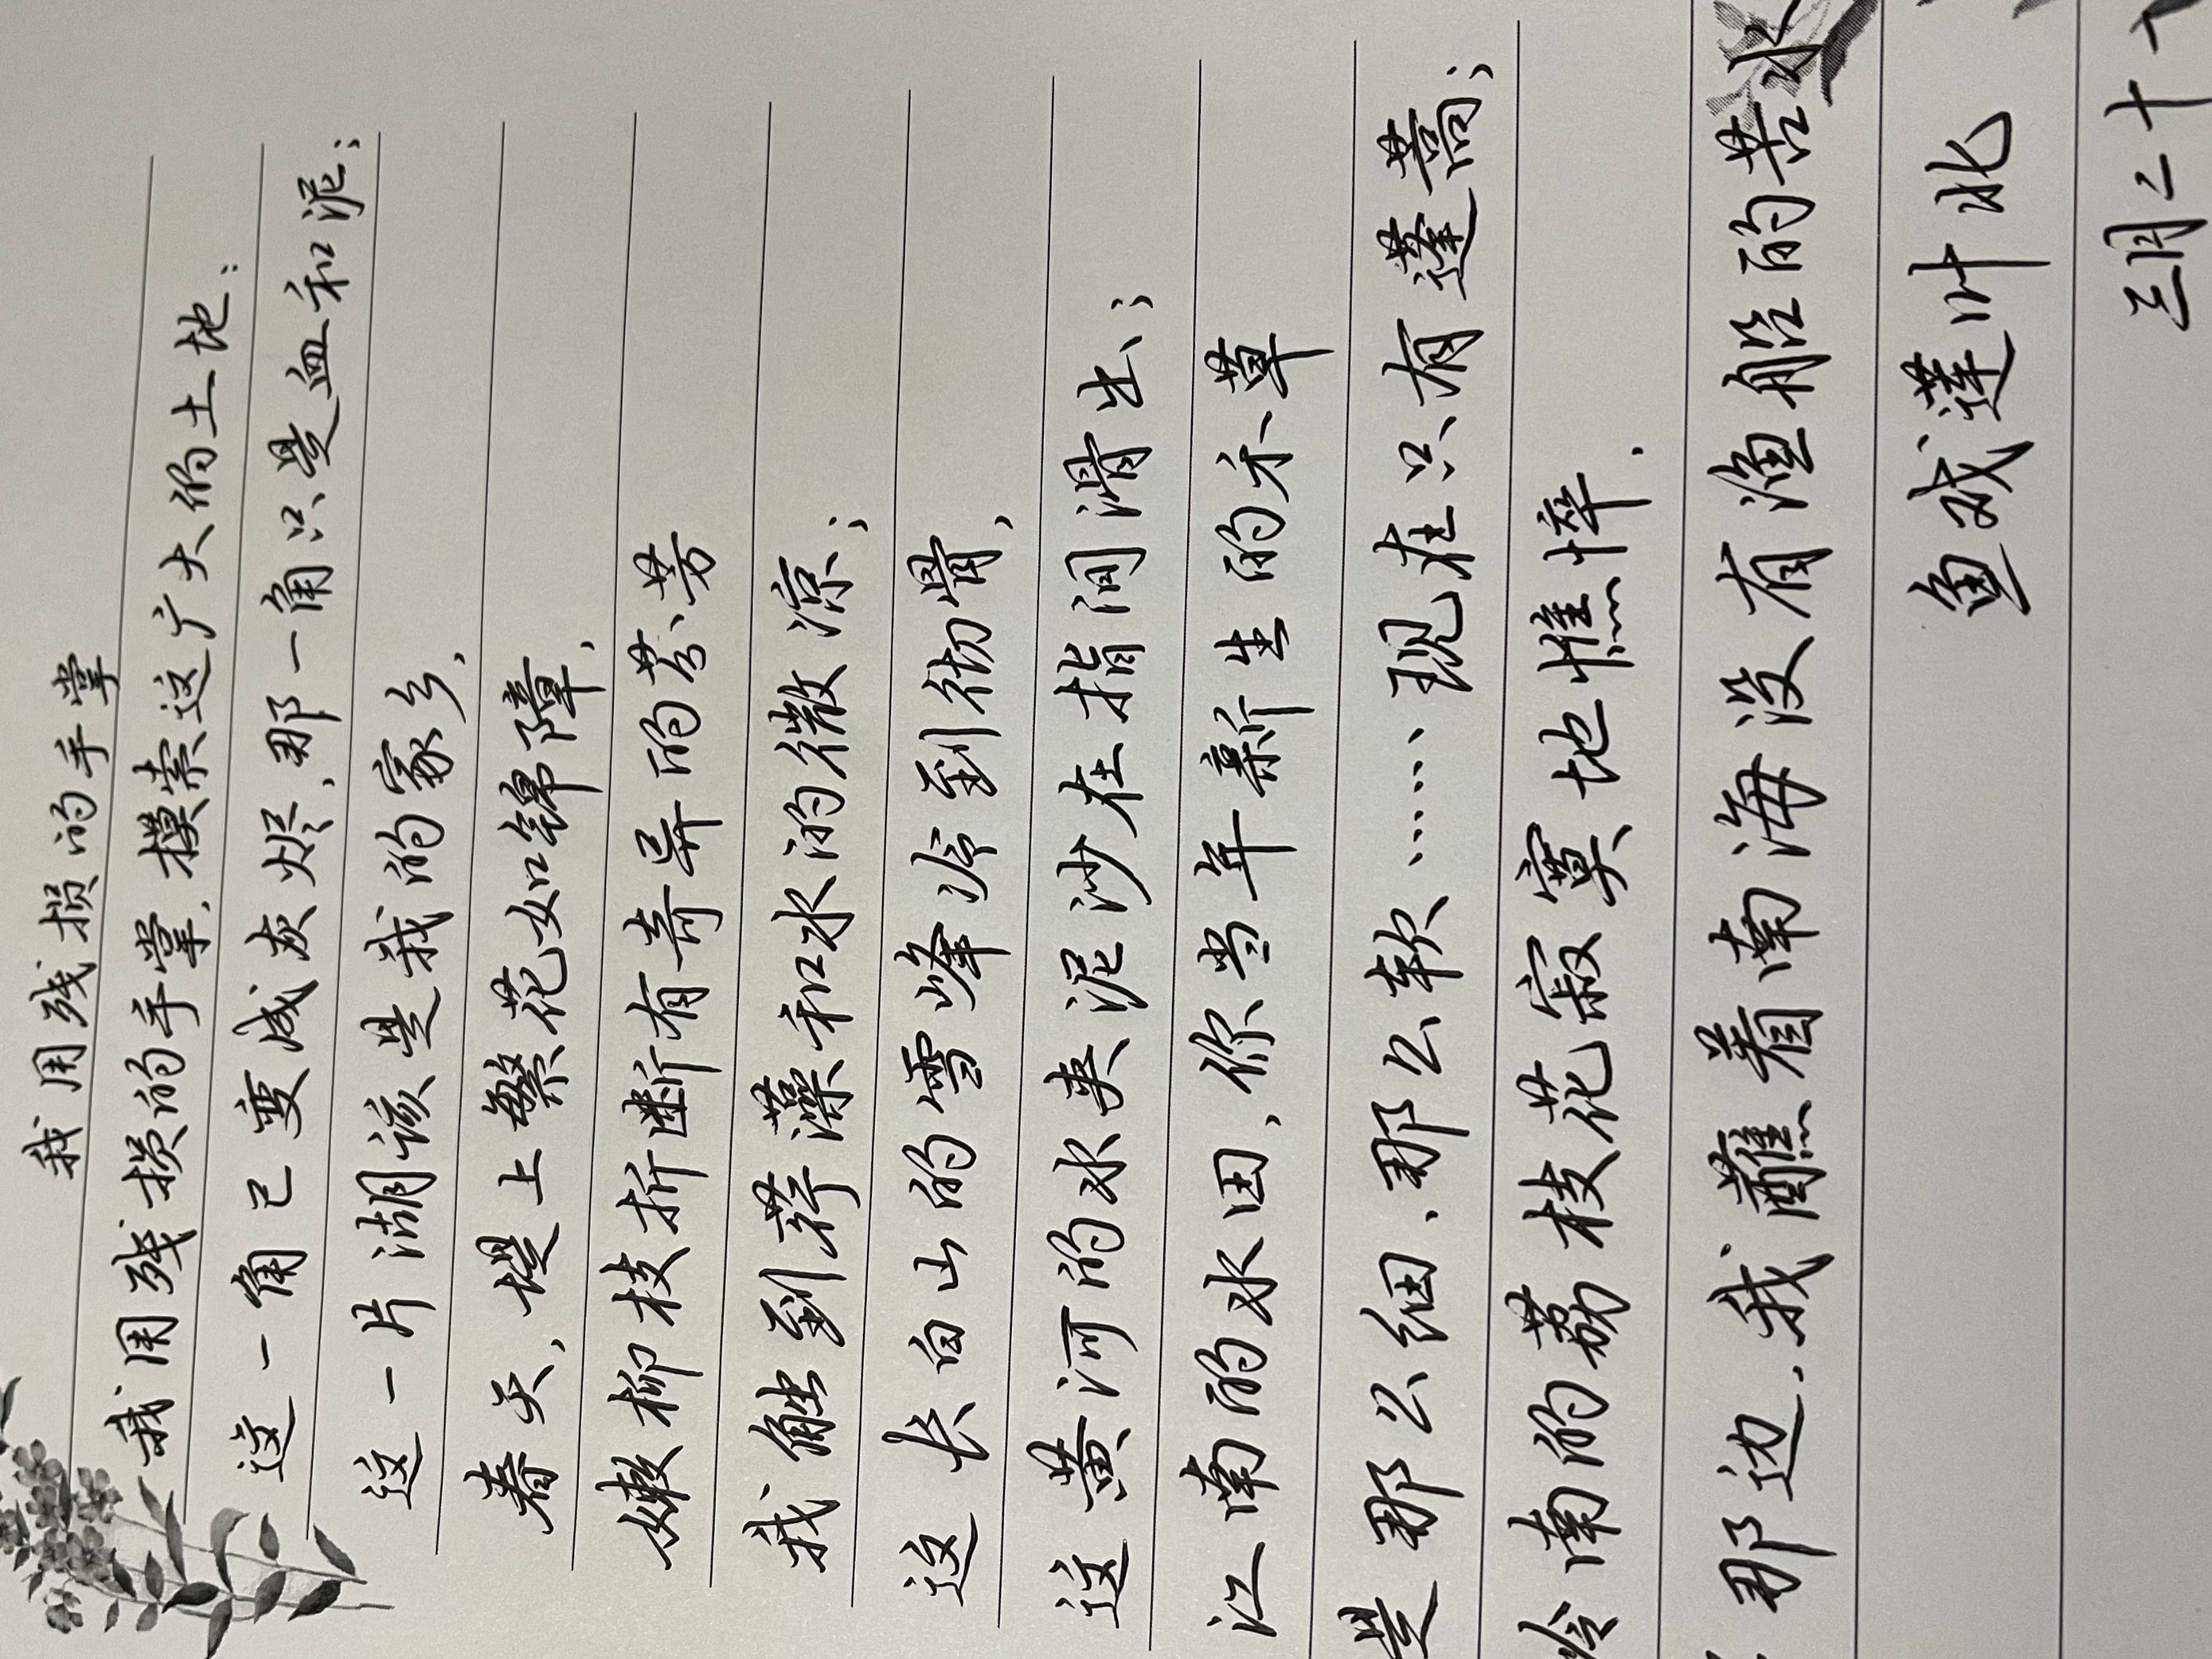 我用残损的手掌
我用残损的手掌,摸索这广大的土地:
这一角已变成灰烬,那一角只是血和泥;
这一片湖该是我的家乡,
春天,堤上繁花如锦障,
嫩柳枝折断有奇异的芬芳
我触到荇藻和水的微凉;
这长白山的雪峰冷到彻骨,
这黄河的水夹泥沙在指间滑出;
江南的水田,你当年新生的禾草
是那么细,那么软……现在只有蓬蒿;
岭南的荔枝花寂寞地憔悴,
那边,我蘸着南海没有渔船的苦水
鱼戏莲叶北
三月二十